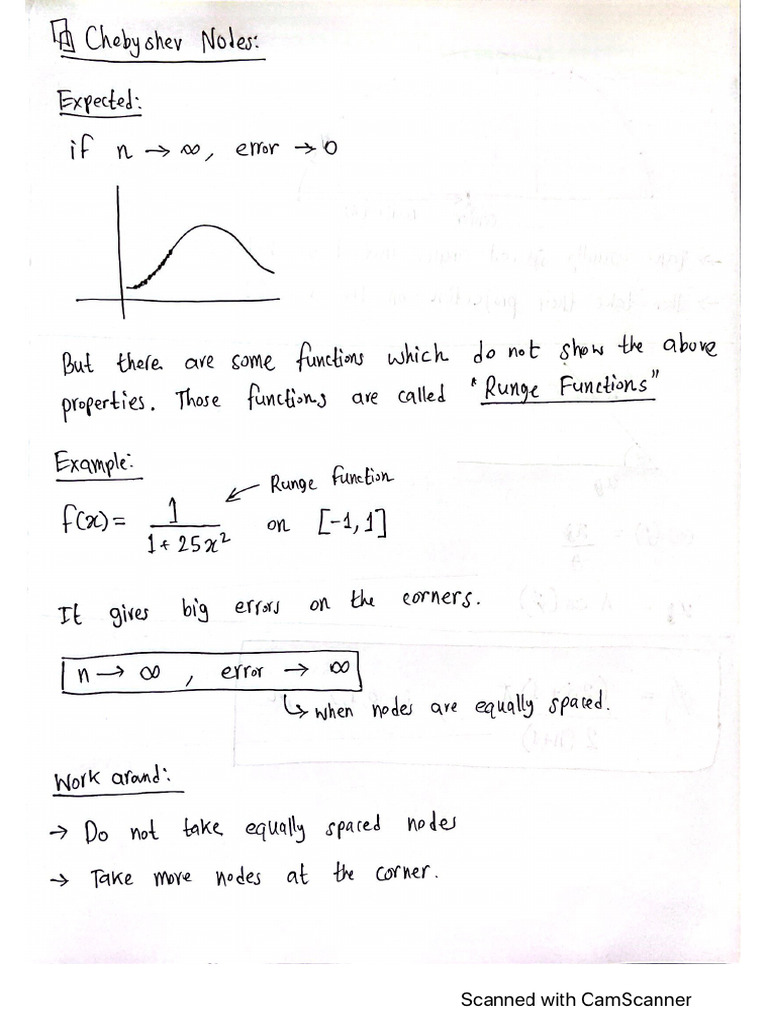 Chebyshev Notes:
Expected:
if n → ∞, error → 0
But there are some functions which do not show the above
properties. Those functions are called "Runge Functions"
Example:
Runge function
f(x) = 1 / 1 + 25x² on [-1, 1]
It gives big errors on the corners.
n → ∞ , error → ∞
↳ when nodes are equally spaced.
Work around:
→ Do not take equally spaced nodes
→ Take more nodes at the corner.
Scanned with CamScanner